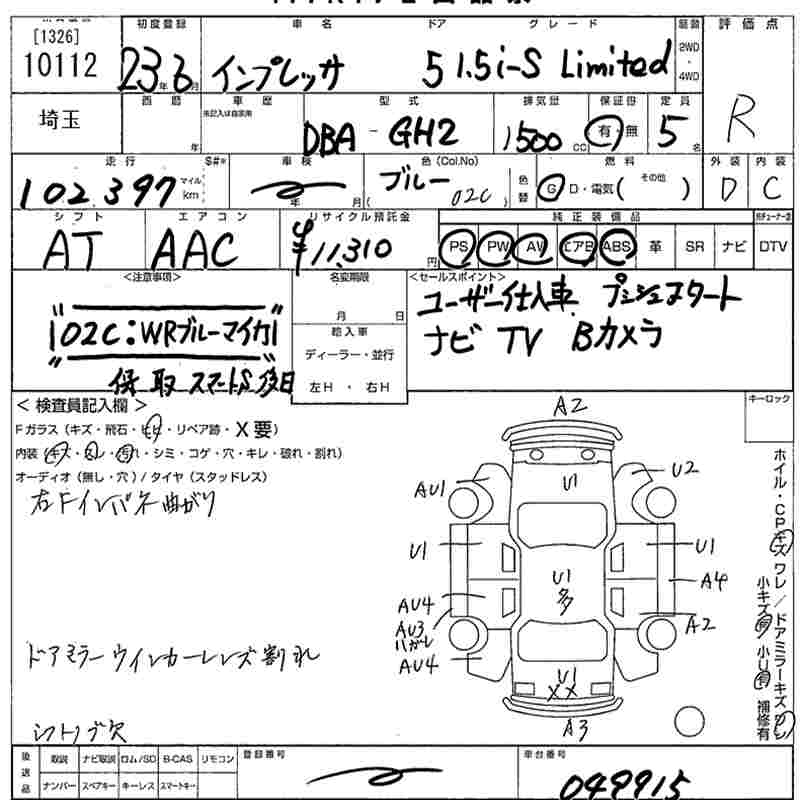 [1326]
10112
初度登録
23年6月
車名
インプレッサ
ドア
5
グレード
1.5i-S Limited
駆動
2WD
4WD
評価点
R
埼玉
西暦
年
車歴
未記入は自家用
型式
DBA - GH2
排気量
1500 CC
保証書
有・無
定員
5名
走行
102,397
マイル
km
S#*
車検
年 月
色(Col.No)
ブルー 02C
色替
燃料
G D・電気( その他 )
外装
D
内装
C
シフト
AT
エアコン
AAC
リサイクル預託金
¥11,310円
純正装備品
PS PW AW エアB ABS 革 SR ナビ DTV
<注意事項>
"02C:WRブルーマイカ"
保取 スマートS後日
名変期限
月 日
輸入車
ディーラー・並行
左H・右H
<セールスポイント>
ユーザー仕入車 プッシュスタート
ナビ TV Bカメラ
<検査員記入欄>
Fガラス(キズ・飛石・ヒビ・リペア跡・X要)
内装(キズ・ネジ・汚れ・シミ・コゲ・穴・キレ・破れ・割れ)
オーディオ(無し・穴)/タイヤ(スタッドレス)
右Fインパネ曲がり
ドアミラーウインカーレンズ割れ
シフトノブ欠
キーロック
A2
U1
U2
AU1
U1
U1
U1
多
A4
AU4
AU3
ハガレ
A2
AU4
U1
XX
A3
ホイル・CPキズ ワレ/ドアミラーキズ ワレ
小キズ有 小U有 補修有
後送品
取説 ナビ取説 ロム/SD B-CAS リモコン
ナンバー スペアキー キーレス スマートキー
登録番号
車台番号
049915